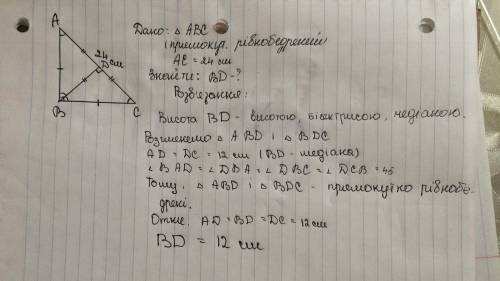 A
24 см
D
B
C
Дано: △ ABC
(прямокут. рівнобедрений)
AC = 24 см
Знайти: BD - ?
Розв'язання:
Висота BD - висотою, бісектрисою, медіаною.
Розглянемо △ ABD і △ BDC
AD = DC = 12 см (BD - медіана)
∠BAD = ∠DBA = ∠DBC = ∠DCB = 45
Тому, △ ABD і △ BDC - прямокутно рівнобе-
дрені.
Отже, AD = BD = DC = 12 см
BD = 12 см